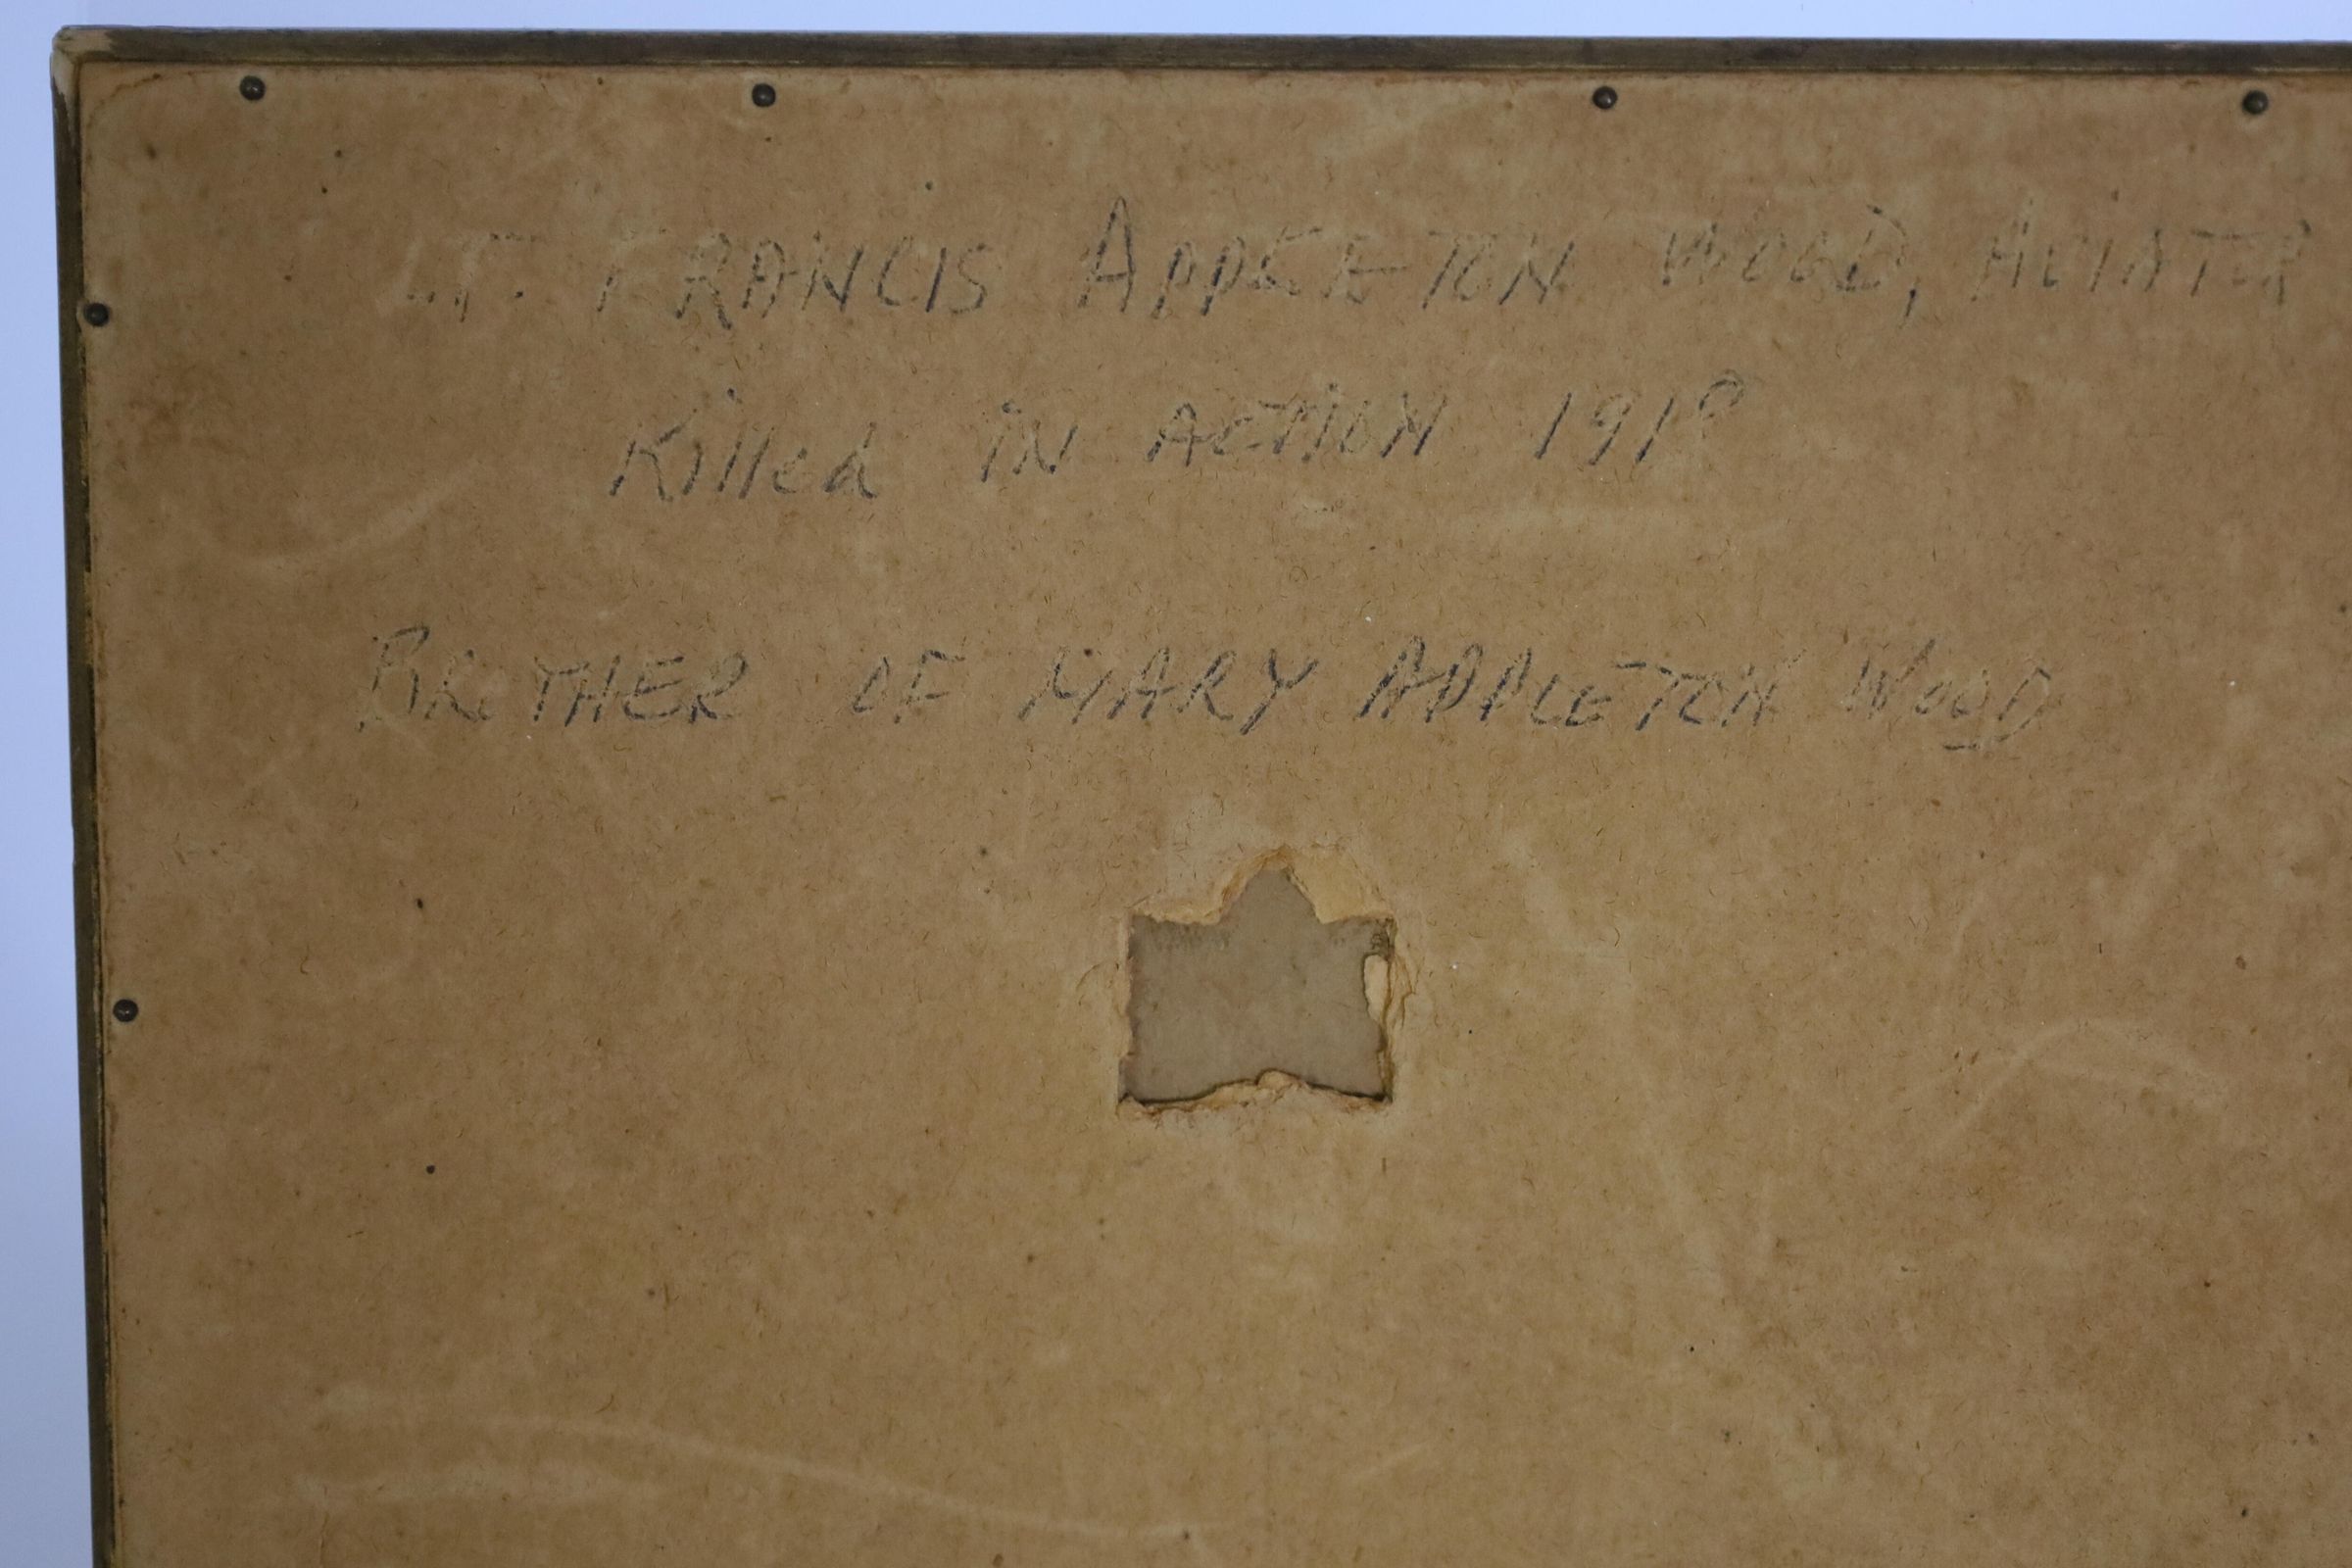 LT. FRANCIS APPLETON WOOD, AVIATOR
Killed IN ACTION 1918
BROTHER OF MARY APPLETON WOOD